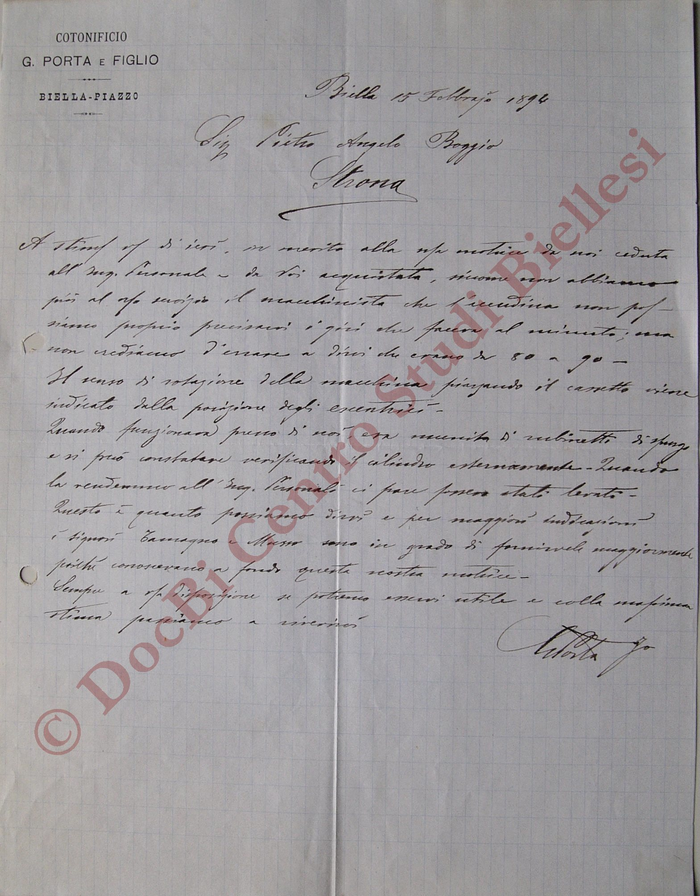 COTONIFICIO
G. PORTA E FIGLIO
BIELLA-PIAZZO
Biella 15 Febbrajo 1894
Sig Pietro Angelo Boggio
Strona
A di ieri, in merito alla motrice da noi ceduta
all'Ing. Personale e da Voi acquistata, siccome non abbiamo
più al servizio il macchinista che l'accudiva non pos-
siamo proprio precisarvi i giri che faceva al minuto; ma
non crediamo d'errare a dirvi che erano da 80 a 90 -
Il senso di rotazione della macchina il cassetto viene
indicato dalla posizione degli eccentrici.
Quando funzionava presso di noi era munita di rubinetti di spurgo
e si può constatare verificando i cilindro esternamente - Quando
la vendemmo all'Ing. Personale ci pare essere stati levati -
Questo è quanto possiamo dirvi e per maggiori indicazioni
i signori Tamagno e Musso sono in grado di fornirvele maggiormente
poichè conoscevano a fondo questa nostra motrice -
Sempre a disposizione se potremo esservi utile e colla massima
stima passiamo a riverirvi
GPorta
© DocBi Centro Studi Biellesi